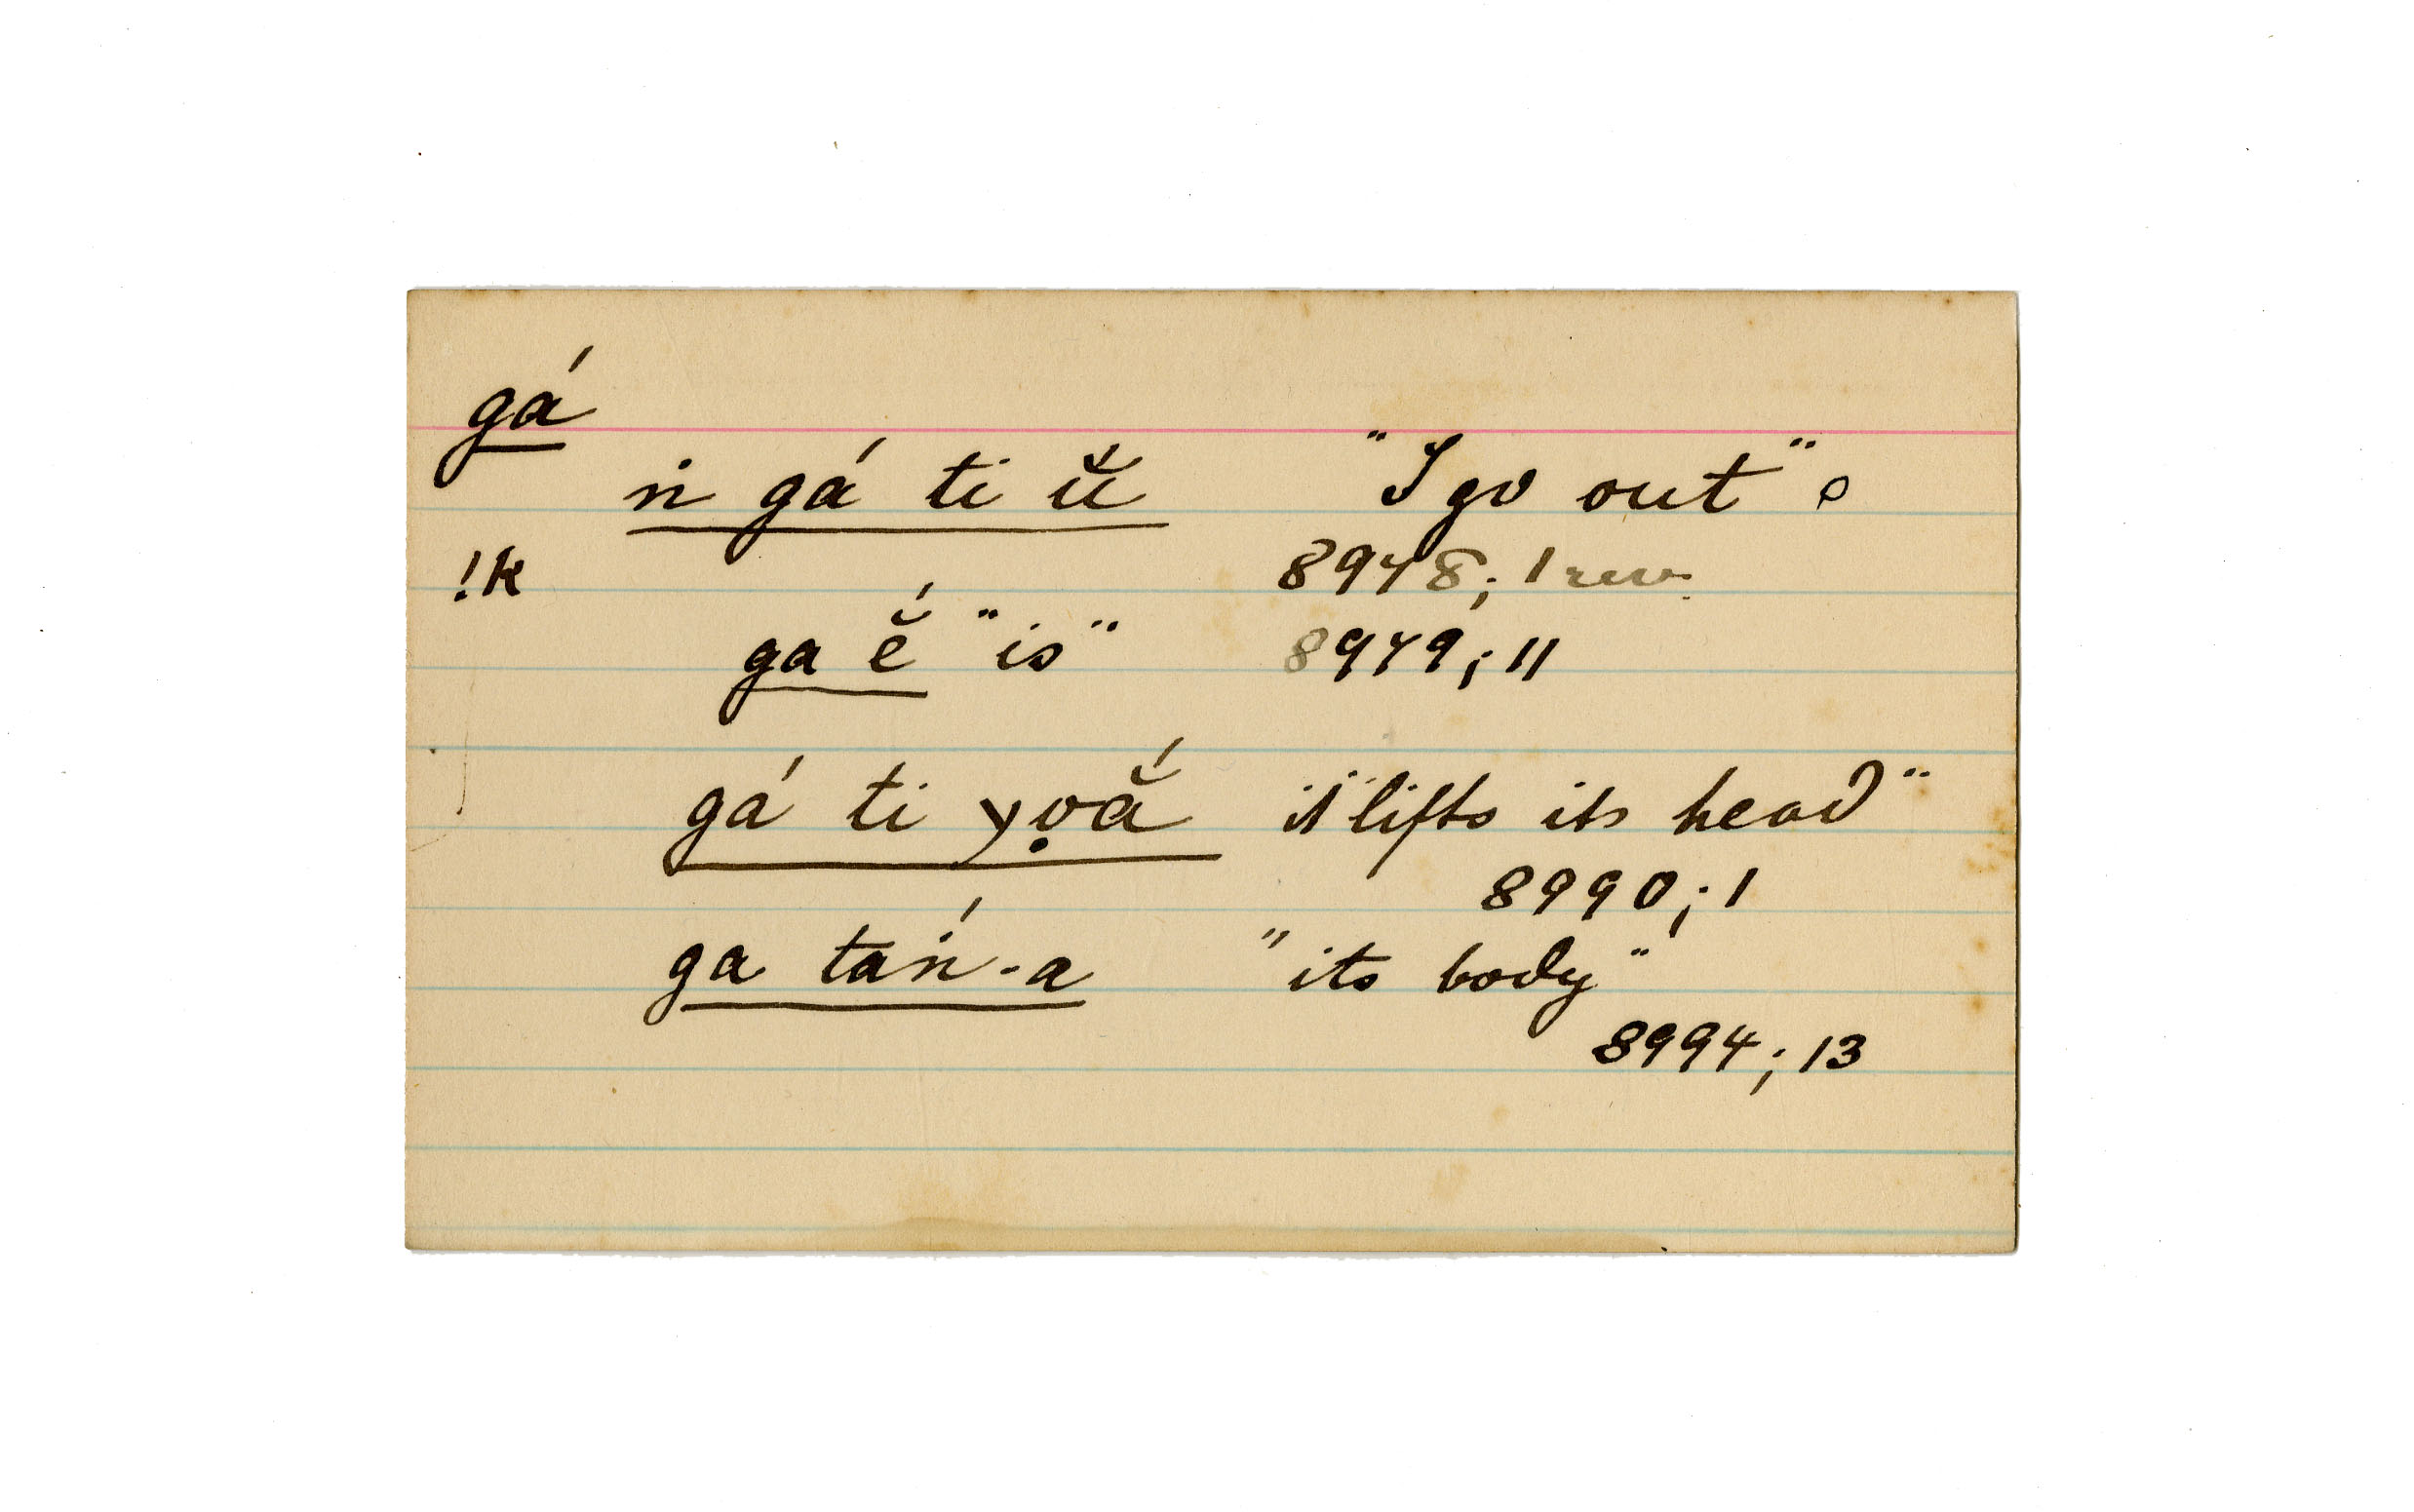 gá
ṅ gá ti ŭ́ "I go out"
!k 8948; 1 rev.
ga ĕ́ "is" 8949; 11
gá ti χo̤ắ it "lifts its head"
8990; 1
ga táṅ-a "its body"
8994; 13